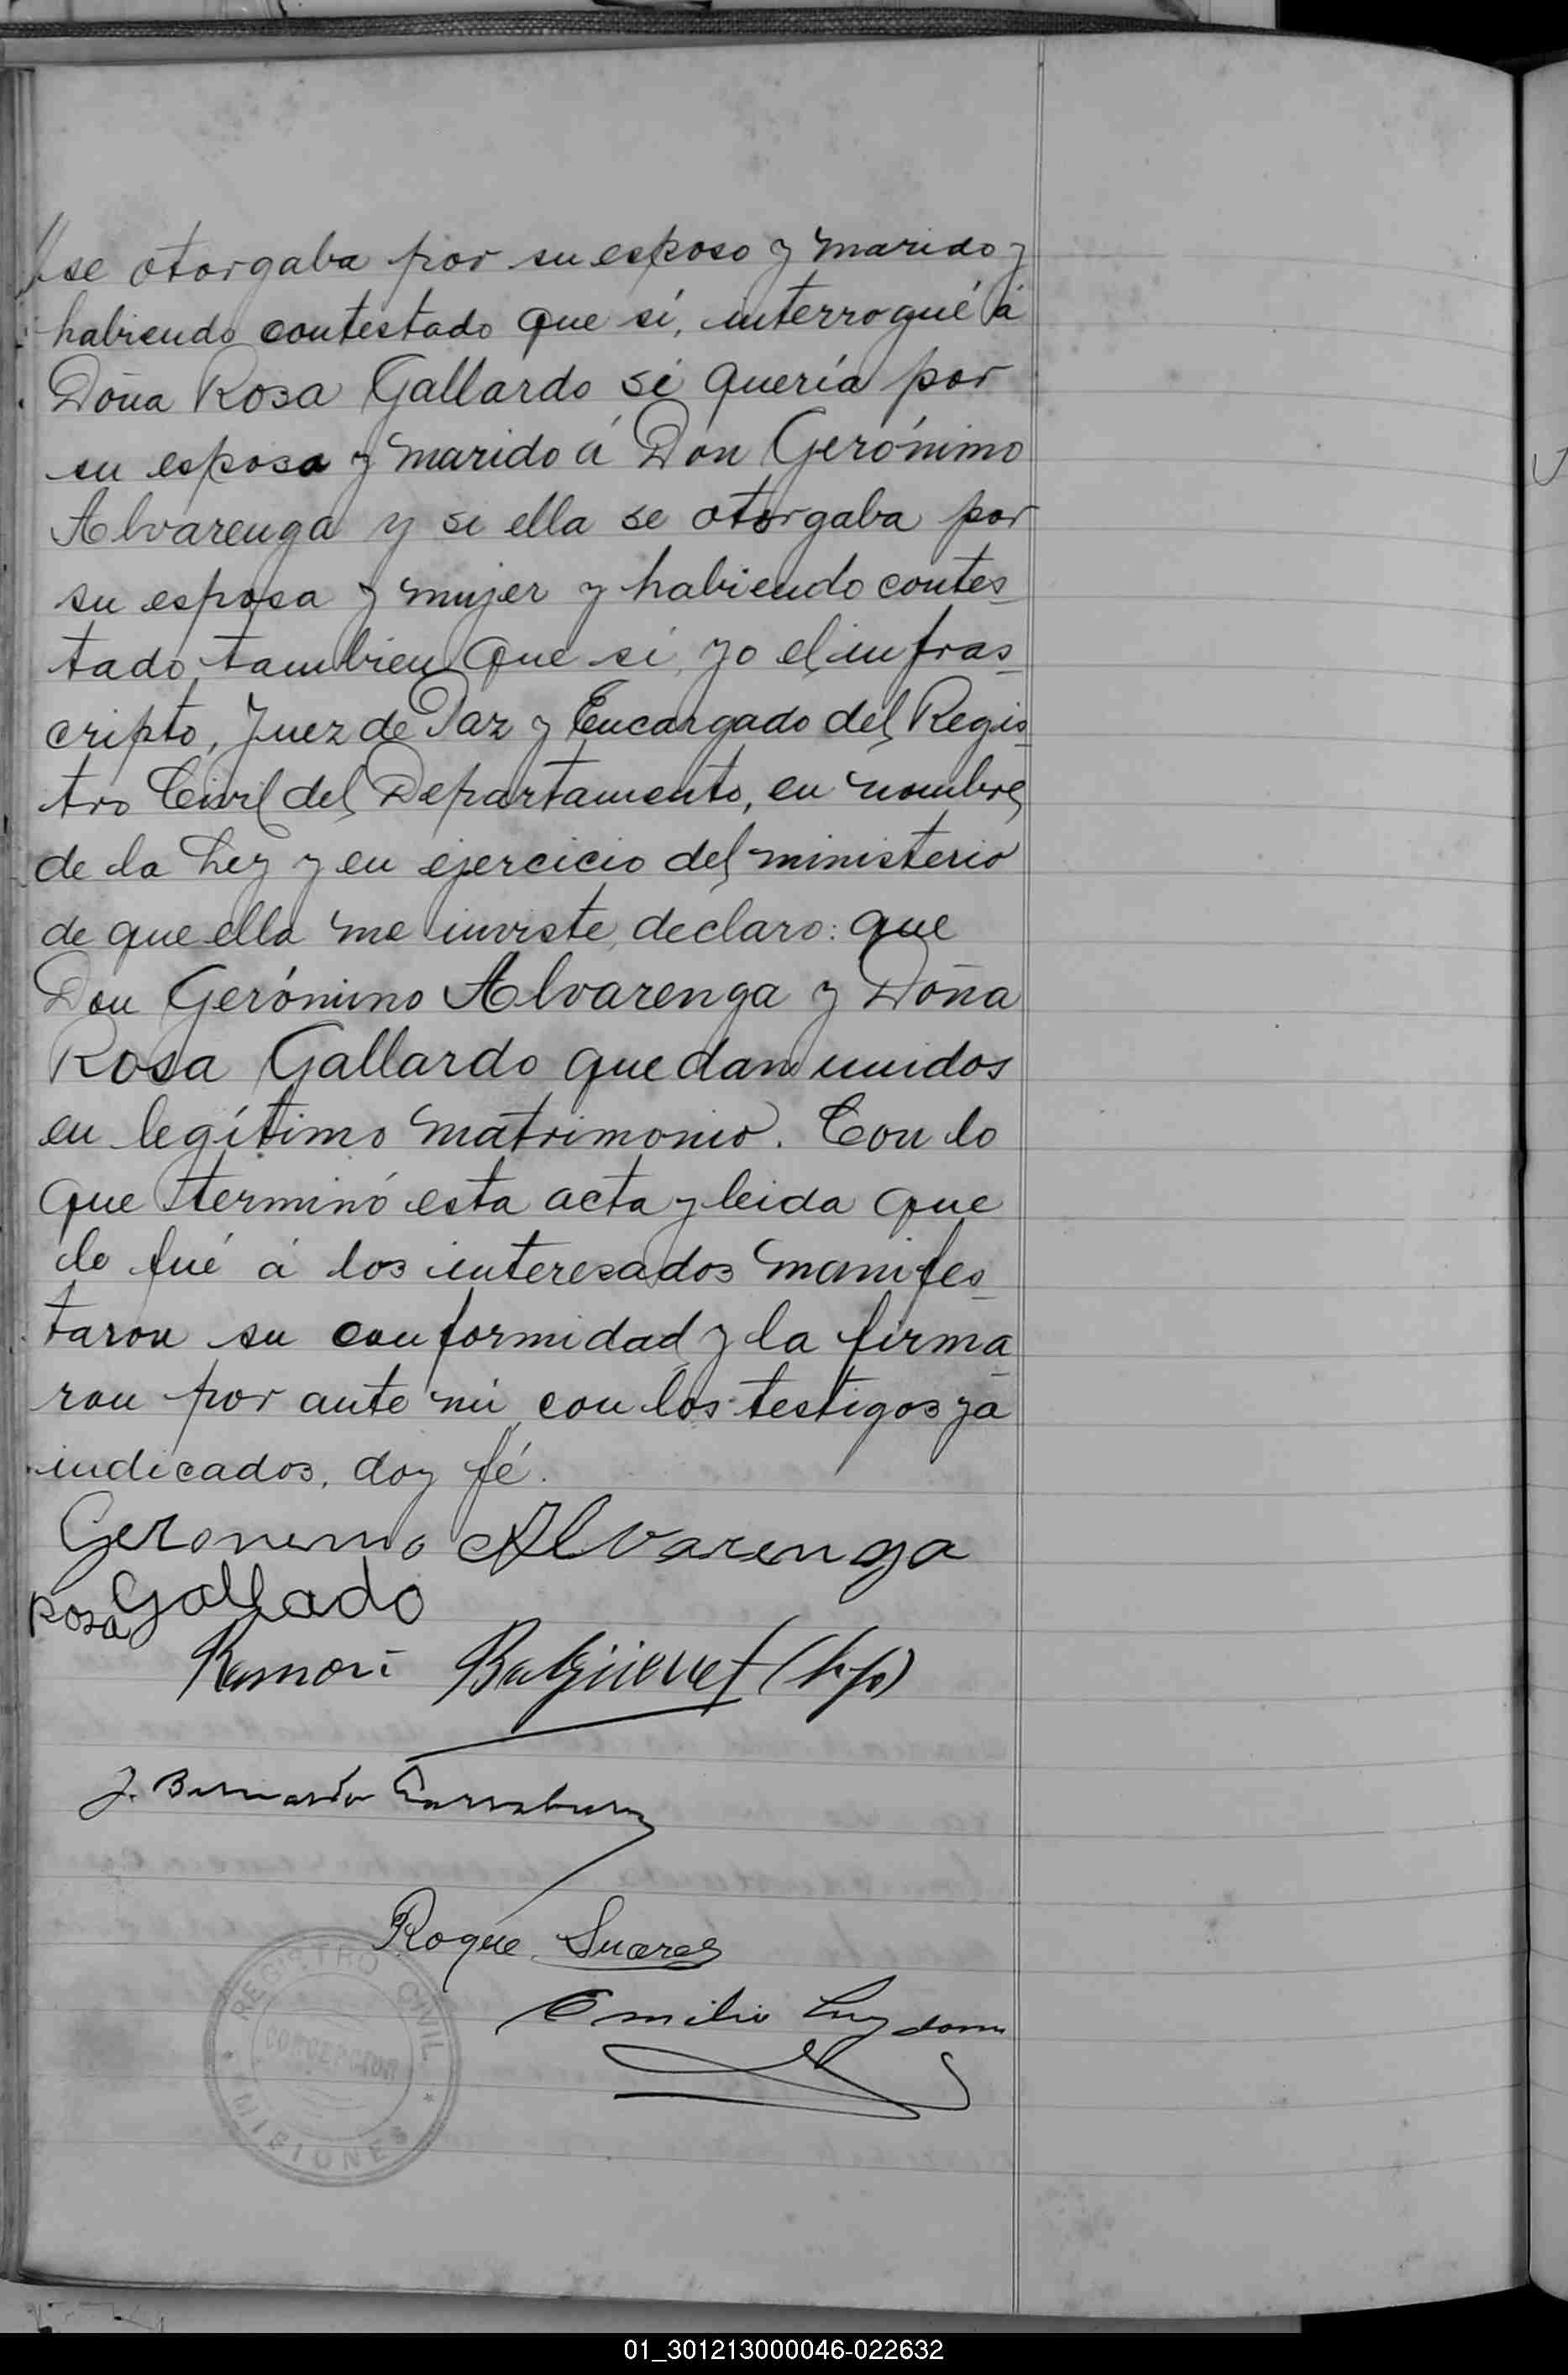 se otorgaba por su esposo y marido y
habiendo contestado que sí, interrogué á
Doña Rosa Gallardo si quería por
su esposo y marido á Don Gerónimo
Alvarenga y si ella se otorgaba por
su esposa y mujer y habiendo contes_
tado tambien que si, yo el infras_
cripto, Juez de Paz y Encargado del Regis_
tro Civil del Departamento, en nombre
de la Ley y en ejercicio del ministerio
de que ella me inviste, declaro: que
Don Gerónimo Alvarenga y Doña
Rosa Gallardo quedan unidos
en legítimo matrimonio. Con lo
que terminó esta acta y leida que
le fué á los interesados manifes_
taron su conformidad y la firma_
ron por ante mi con los testigos ya
indicados, doy fé.
Geronimo Alvarenga
Rosa Gallado
Ramon
J. Bernardo
Roque Suarez
Emilio
REGISTRO CIVIL
CONCEPCION
MISIONES
01_301213000046-022632